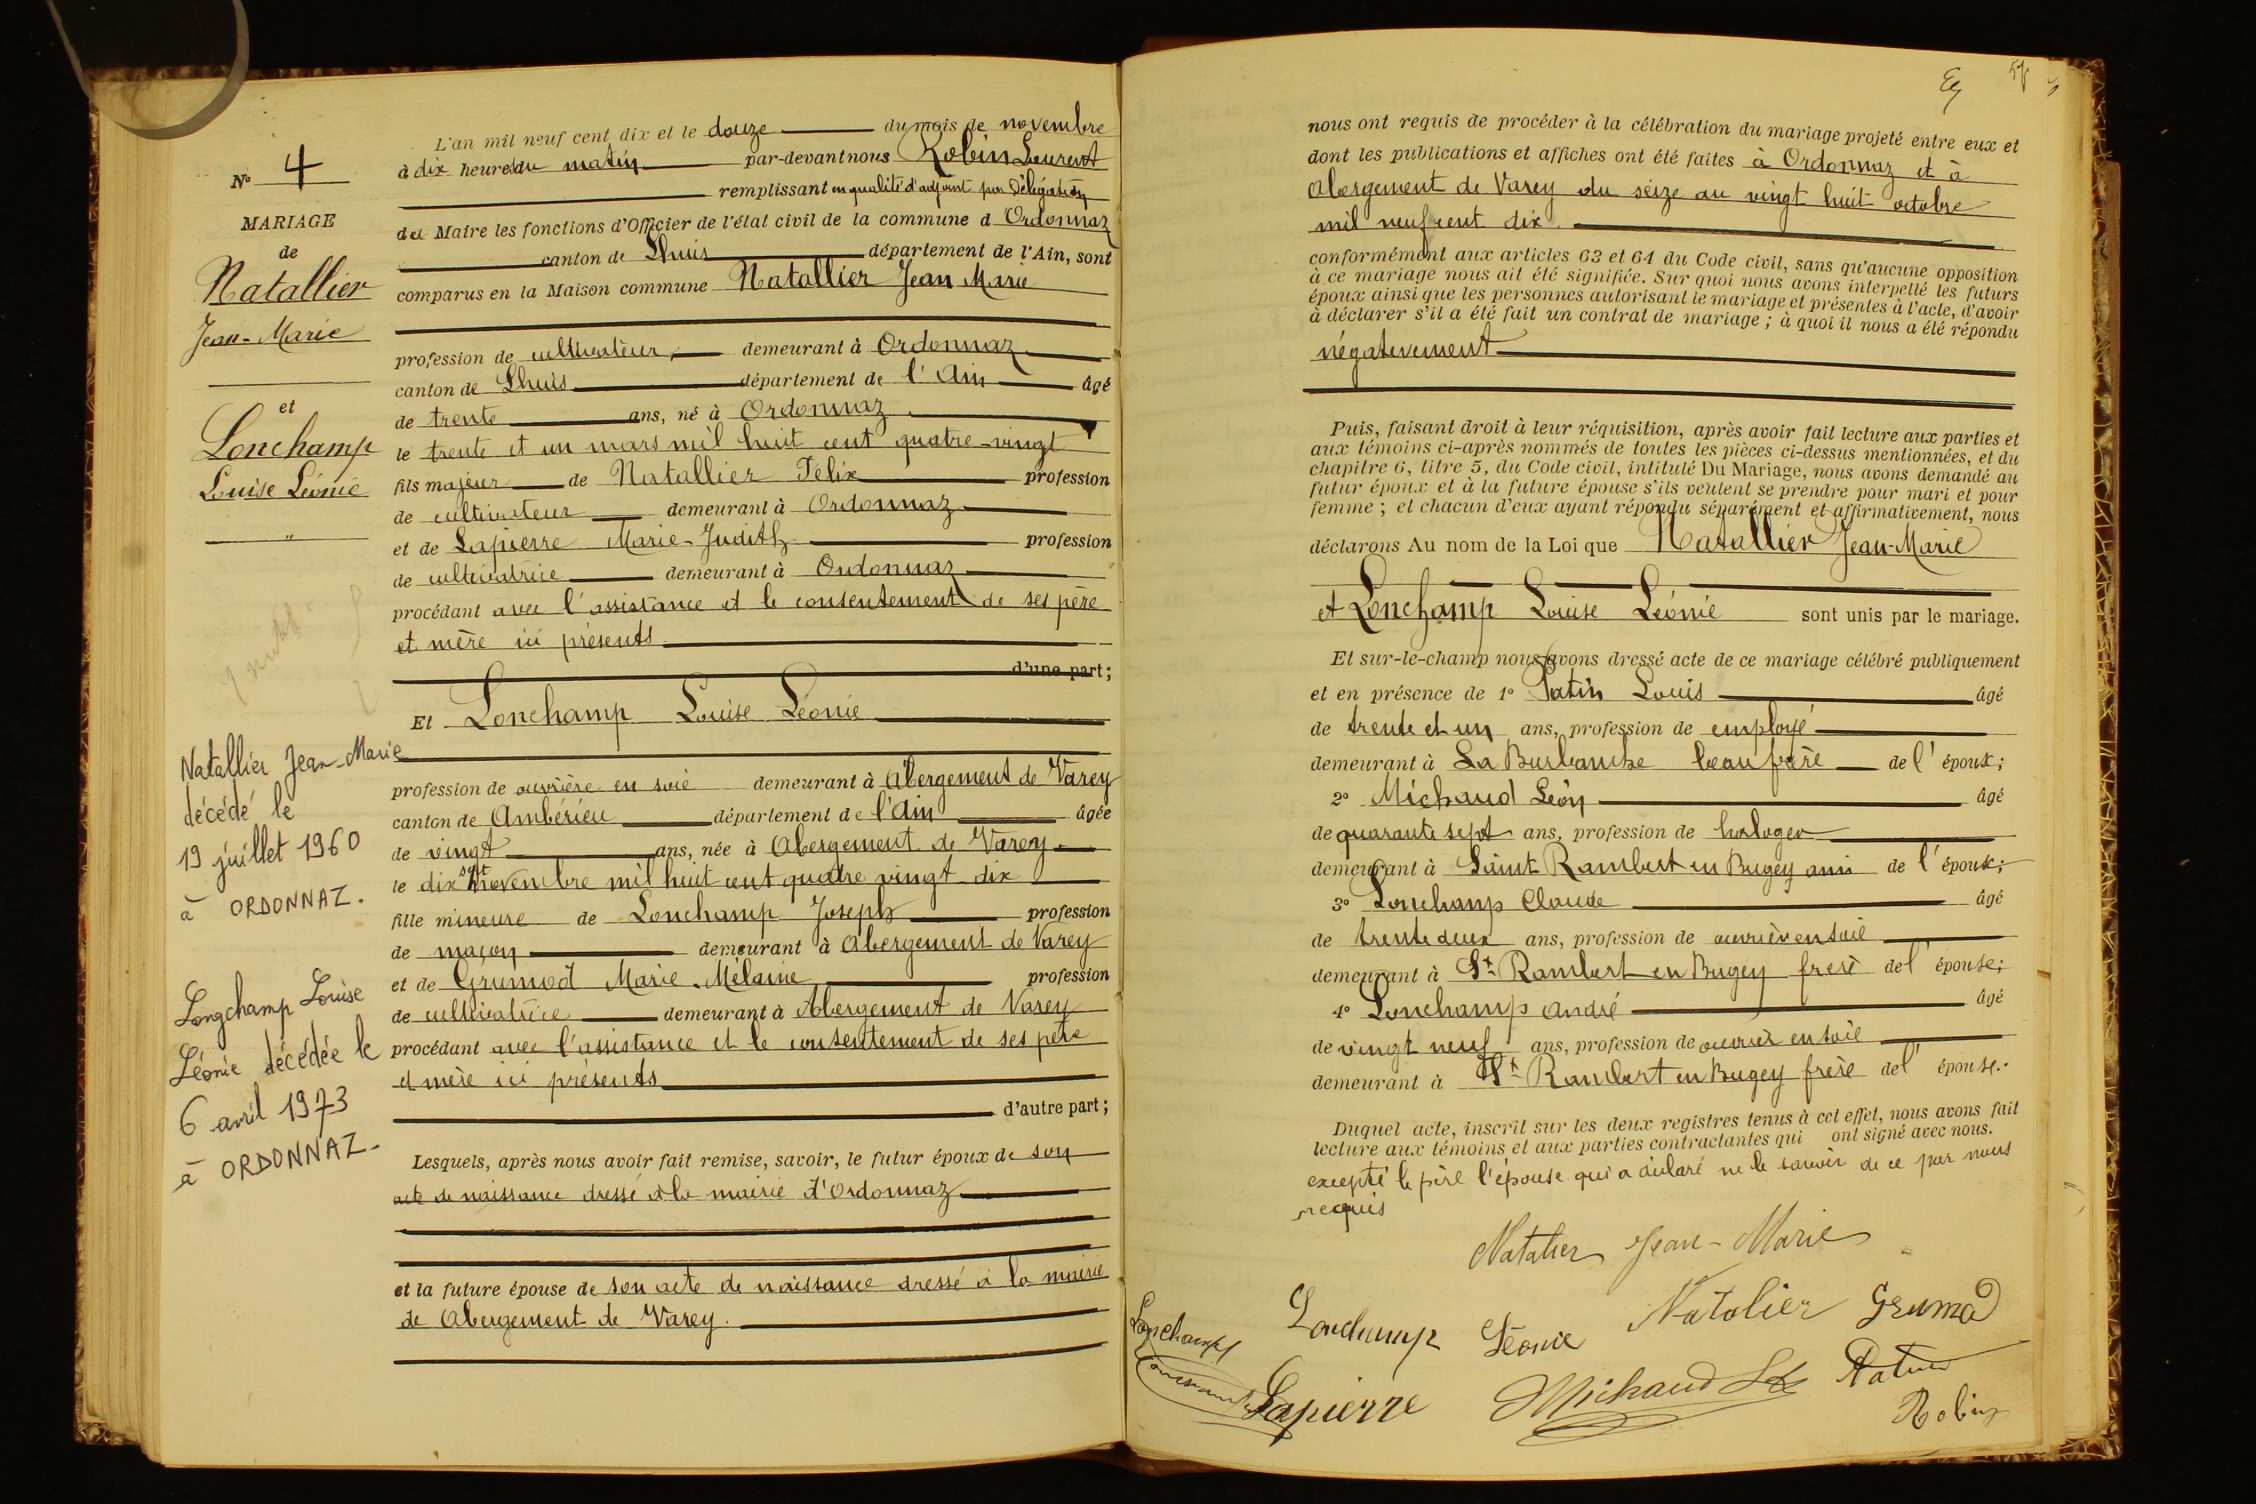 N° 4
MARIAGE
de
Natallier
Jean-Marie
et
Lonchamp
Louise Léonie
"
Natallier Jean-Marie
décédé le
19 juillet 1960
à ORDONNAZ.
Longchamp Louise
Léonie décédée le
6 avril 1973
à ORDONNAZ-
L'an mil neuf cent dix et le douze du mois de novembre
à dix heures du matin par-devant nous Robin Laurent
remplissant en qualité d'adjoint par Délégation
du Maire les fonctions d'Officier de l'état civil de la commune d Ordonnaz
canton de Lhuis département de l'Ain, sont
comparus en la Maison commune Natallier Jean Marie
profession de cultivateur, demeurant à Ordonnaz
canton de Lhuis département de l'Ain âgé
de trente ans, né à Ordonnaz
le trente et un mars mil huit cent quatre-vingt
fils majeur de Natallier Félix profession
de cultivateur demeurant à Ordonnaz
et de Lapierre Marie-Judith profession
de cultivatrice demeurant à Ordonnaz
procédant avec l'assistance et le consentement de ses père
et mère ici présents
d'une part;
Et Lonchamp Louise Léonie
profession de ouvrière en soie demeurant à Abergement de Varey
canton de Ambérieu département de l'Ain âgée
de vingt ans, née à Abergement de Varey
le dix sept novembre mil huit cent quatre vingt dix
fille mineure de Lonchamp Joseph profession
de maçon demeurant à Abergement de Varey
et de Grumod Marie-Mélanie profession
de cultivatrice demeurant à Abergement de Varey
procédant avec l'assistance et le consentement de ses père
et mère ici présents
d'autre part;
Lesquels, après nous avoir fait remise, savoir, le futur époux de son
acte de naissance dressé à la mairie d'Ordonnaz
et la future épouse de son acte de naissance dressé à la mairie
de Abergement de Varey.
nous ont requis de procéder à la célébration du mariage projeté entre eux et
dont les publications et affiches ont été faites à Ordonnaz et à
Abergement de Varey du seize au vingt huit octobre
mil neuf cent dix.
conformément aux articles 63 et 64 du Code civil, sans qu'aucune opposition
à ce mariage nous ait été signifiée. Sur quoi nous avons interpellé les futurs
époux ainsi que les personnes autorisant le mariage et présentes à l'acte, d'avoir
à déclarer s'il a été fait un contrat de mariage; à quoi il nous a été répondu
négativement
Puis, faisant droit à leur réquisition, après avoir fait lecture aux parties et
aux témoins ci-après nommés de toutes les pièces ci-dessus mentionnées, et du
chapitre 6, titre 5, du Code civil, intitulé Du Mariage, nous avons demandé au
futur époux et à la future épouse s'ils veulent se prendre pour mari et pour
femme; et chacun d'eux ayant répondu séparément et affirmativement, nous
déclarons Au nom de la Loi que Natallier Jean-Marie
et Lonchamp Louise Léonie sont unis par le mariage.
Et sur-le-champ nous avons dressé acte de ce mariage célébré publiquement
et en présence de 1° Patin Louis âgé
de trente et un ans, profession de employé
demeurant à La Burbanche beau frère de l'époux;
2° Michaud Léon âgé
de quarante sept ans, profession de horloger
demeurant à Saint Rambert en Bugey ami de l'époux;
3° Lonchamp Claude âgé
de trente deux ans, profession de ouvrier en soie
demeurant à St Rambert en Bugey frère de l'épouse;
4° Lonchamp André âgé
de vingt neuf ans, profession de ouvrier en soie
demeurant à St Rambert en Bugey frère de l'épouse.
Duquel acte, inscrit sur les deux registres tenus à cet effet, nous avons fait
lecture aux témoins et aux parties contractantes qui ont signé avec nous.
excepté le père l'épouse qui a déclaré ne le savoir de ce par nous
requis
Natalier Jean-Marie
Lonchamp Léonie Natalier Grumod
Lonchamp
Lapierre Michaud Patin
Robin